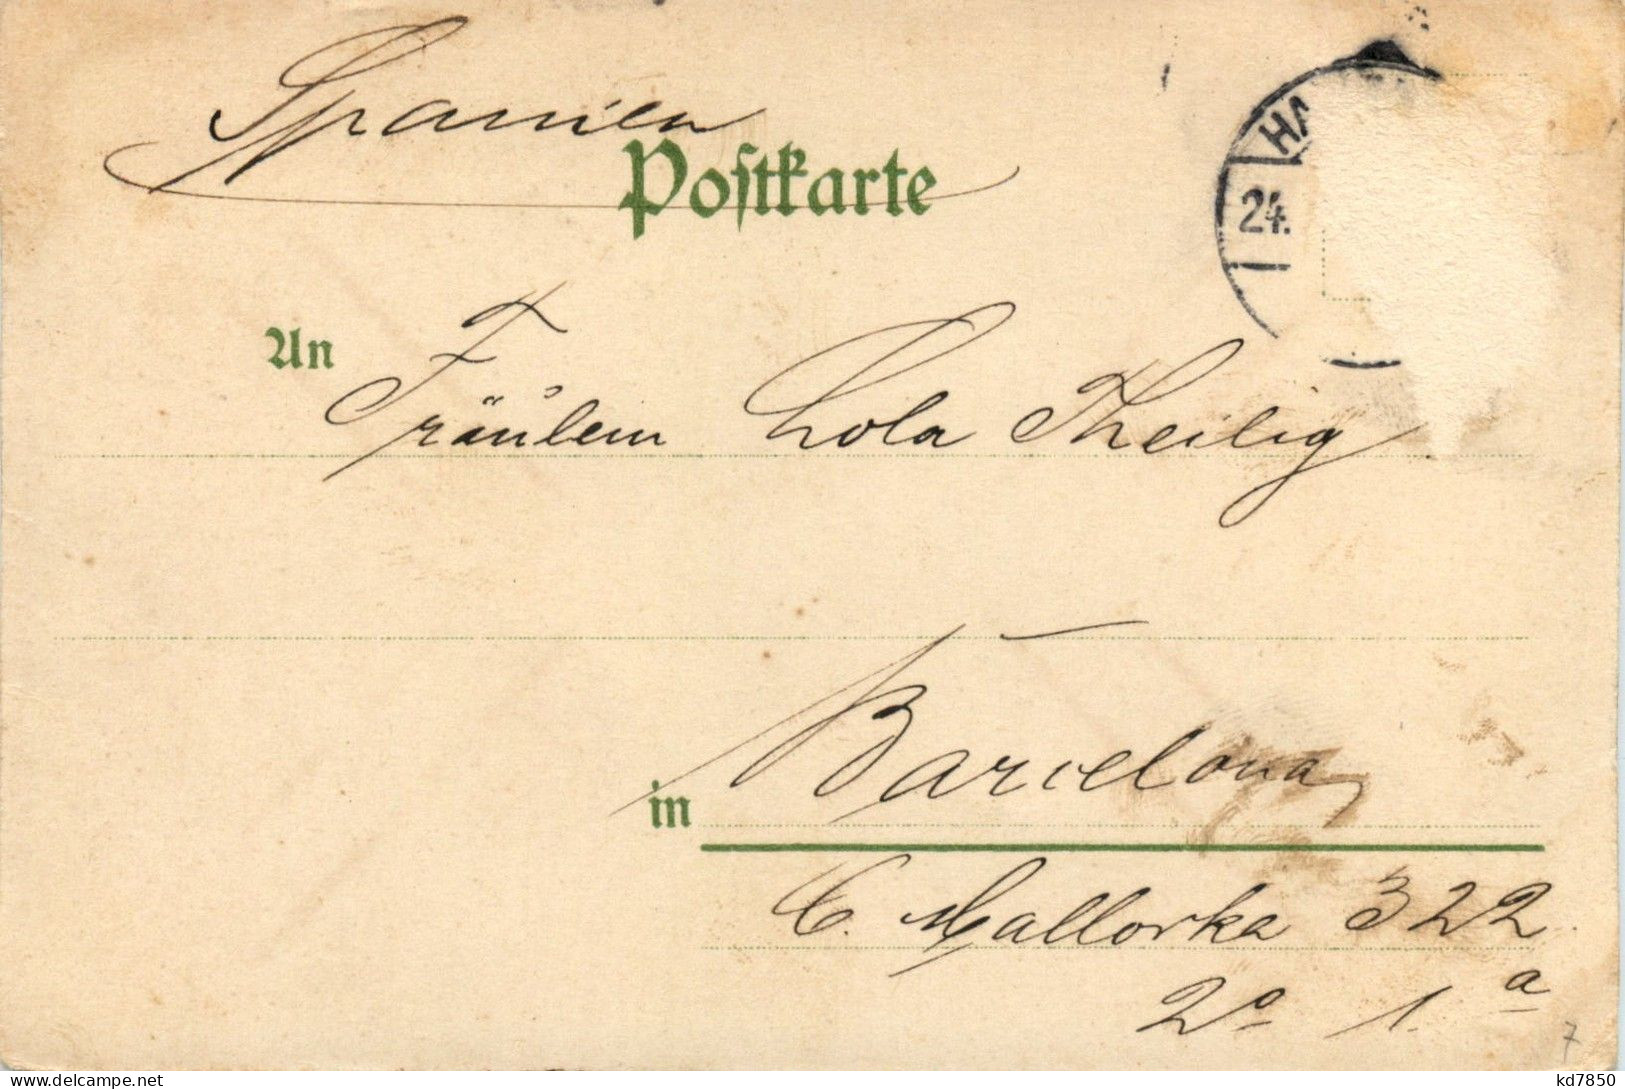 Spanien
Postkarte
HA
24.
An Fräulein Lola Theilig
in Barcelona
C. Mallorka 322
2º 1.ª
7
www.delcampe.net
kd7850